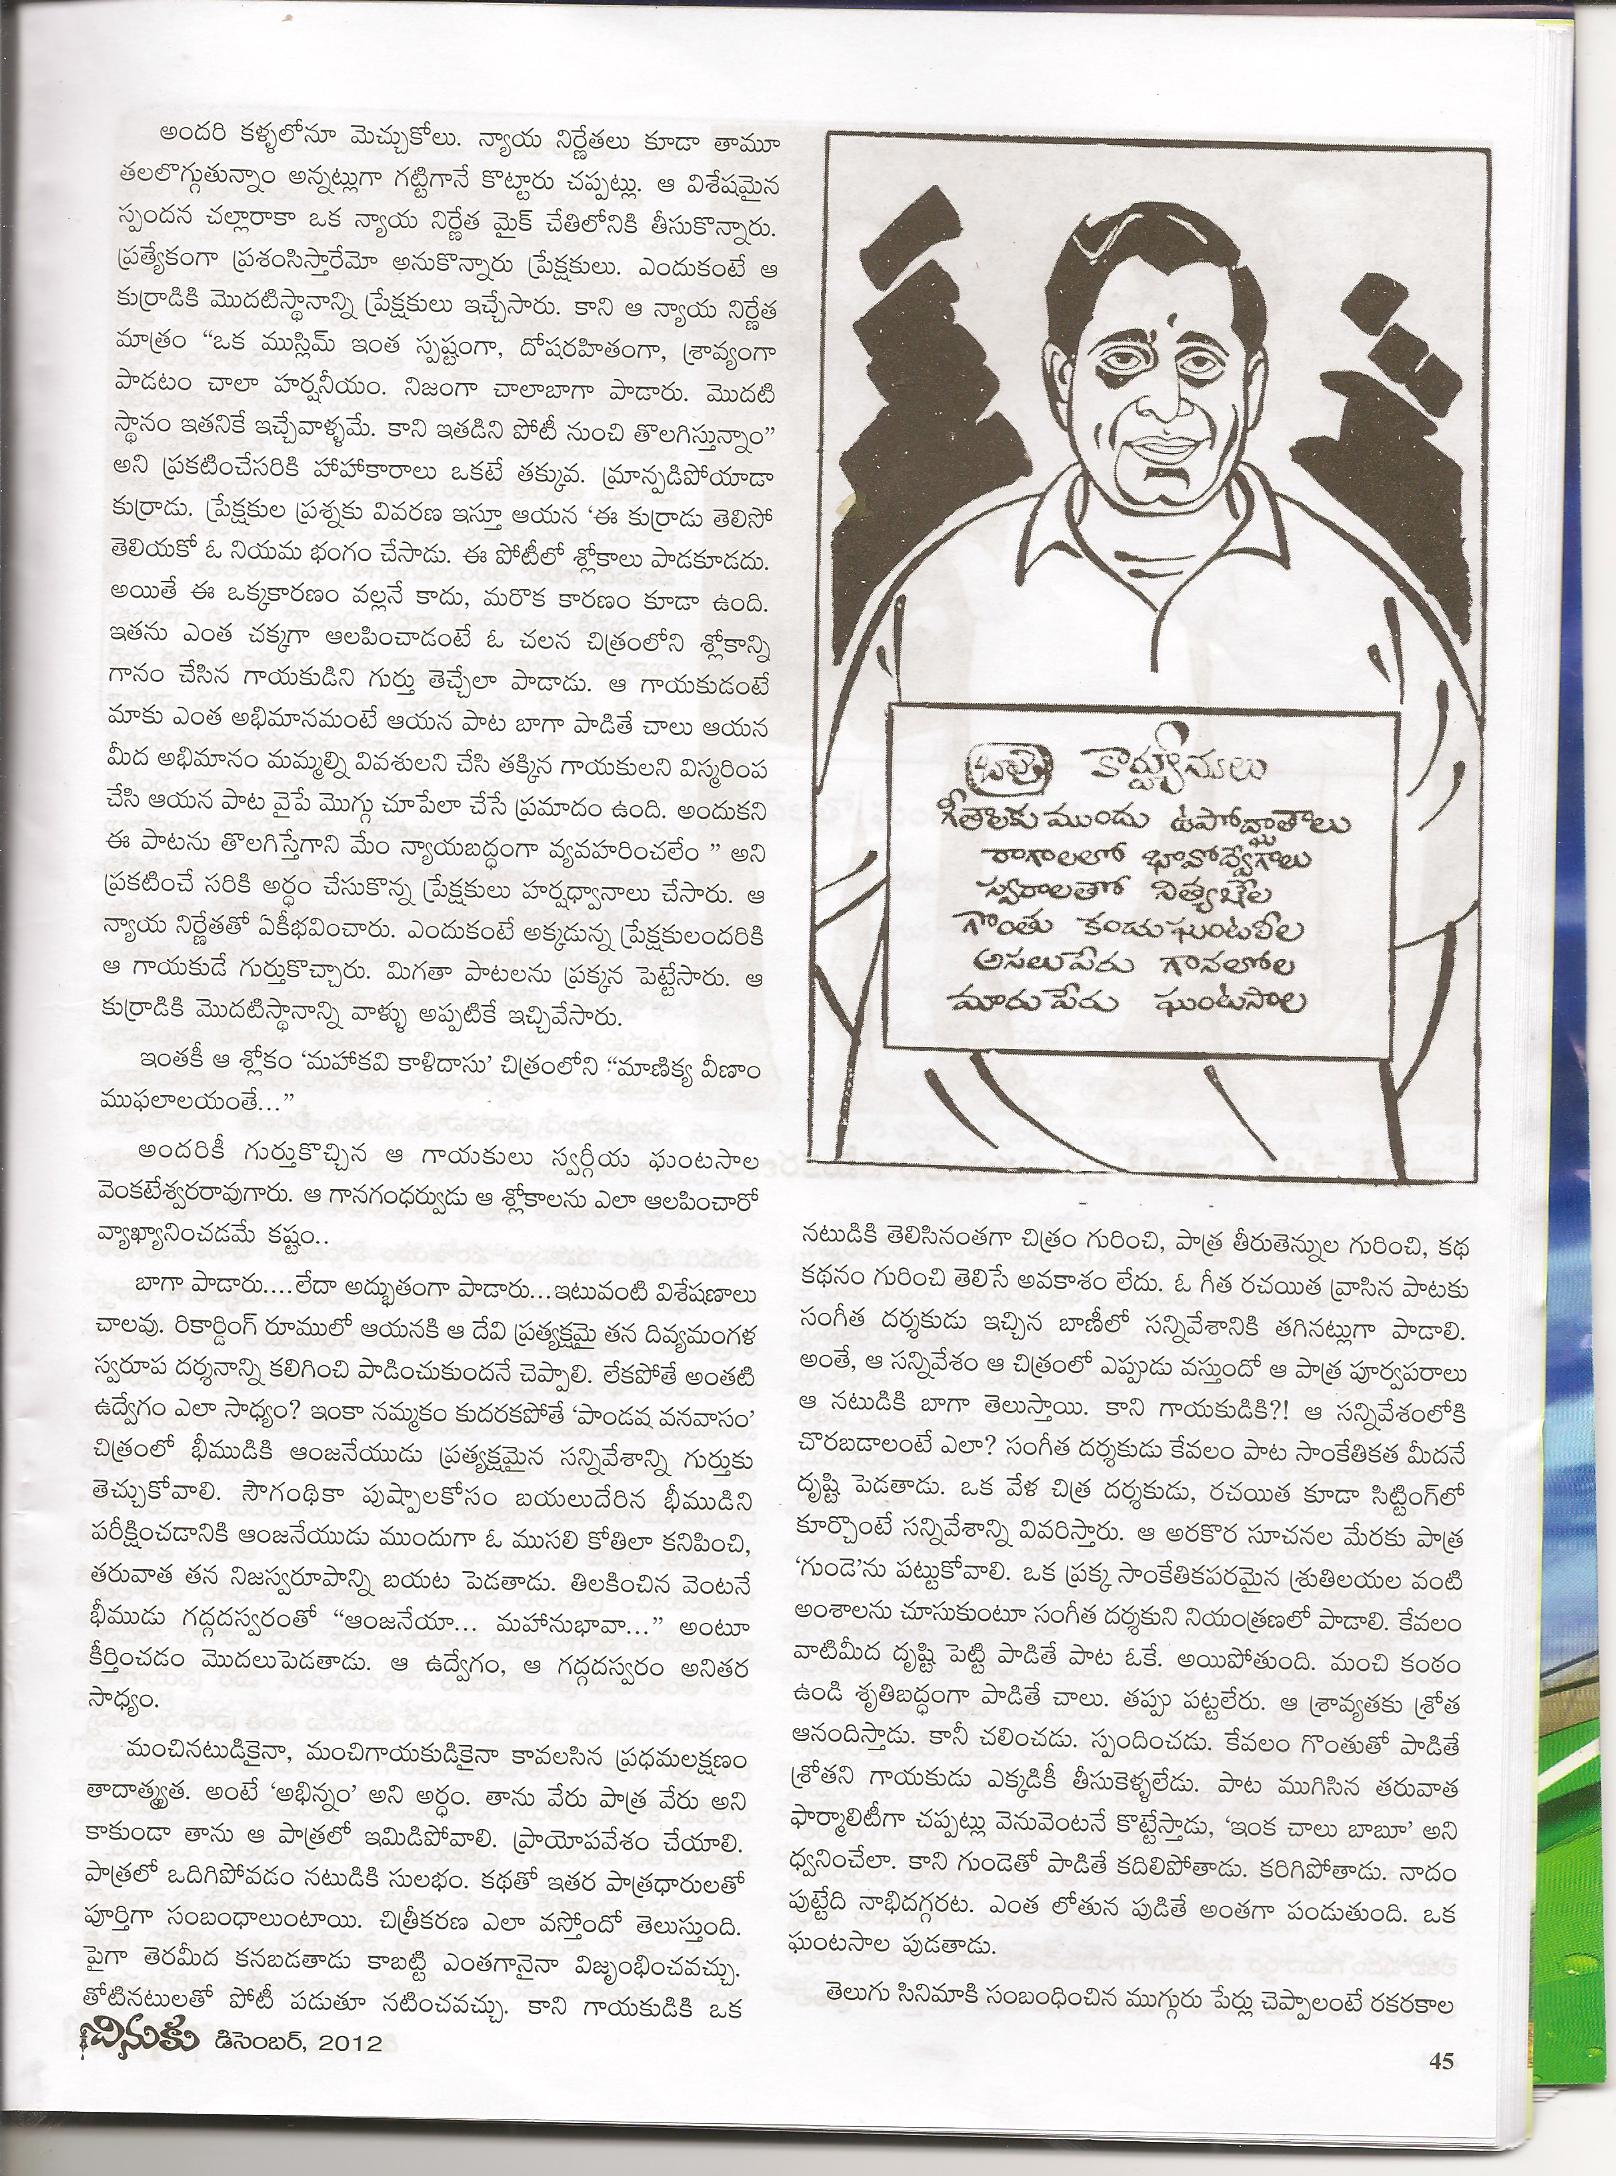 అందరి కళ్ళలోనూ మెచ్చుకోలు. న్యాయ నిర్ణేతలు కూడా తామూ
తలలొగ్గుతున్నాం అన్నట్లుగా గట్టిగానే కొట్టారు చప్పట్లు. ఆ విశేషమైన
స్పందన చల్లారాకా ఒక న్యాయ నిర్ణేత మైక్ చేతిలోనికి తీసుకొన్నారు.
ప్రత్యేకంగా ప్రశంసిస్తారేమో అనుకొన్నారు ప్రేక్షకులు. ఎందుకంటే ఆ
కుర్రాడికి మొదటిస్థానాన్ని ప్రేక్షకులు ఇచ్చేసారు. కాని ఆ న్యాయ నిర్ణేత
మాత్రం “ఒక ముస్లిమ్ ఇంత స్పష్టంగా, దోషరహితంగా, శ్రావ్యంగా
పాడటం చాలా హర్షనీయం. నిజంగా చాలాబాగా పాడారు. మొదటి
స్థానం ఇతనికే ఇచ్చేవాళ్ళమే. కాని ఇతడిని పోటీ నుంచి తొలగిస్తున్నాం”
అని ప్రకటించేసరికి హాహాకారాలు ఒకటే తక్కువ. మ్రాన్పడిపోయాడా
కుర్రాడు. ప్రేక్షకుల ప్రశ్నకు వివరణ ఇస్తూ ఆయన ‘ఈ కుర్రాడు తెలిసో
తెలియకో ఓ నియమ భంగం చేసాడు. ఈ పోటీలో శ్లోకాలు పాడకూడదు.
అయితే ఈ ఒక్కకారణం వల్లనే కాదు, మరొక కారణం కూడా ఉంది.
ఇతను ఎంత చక్కగా ఆలపించాడంటే ఓ చలన చిత్రంలోని శ్లోకాన్ని
గానం చేసిన గాయకుడిని గుర్తు తెచ్చేలా పాడాడు. ఆ గాయకుడంటే
మాకు ఎంత అభిమానమంటే ఆయన పాట బాగా పాడితే చాలు ఆయన
మీద అభిమానం మమ్మల్ని వివశులని చేసి తక్కిన గాయకులని విస్మరింప
చేసి ఆయన పాట వైపే మొగ్గు చూపేలా చేసే ప్రమాదం ఉంది. అందుకని
ఈ పాటను తొలగిస్తేగాని మేం న్యాయబద్ధంగా వ్యవహరించలేం ” అని
ప్రకటించే సరికి అర్ధం చేసుకొన్న ప్రేక్షకులు హర్షధ్వానాలు చేసారు. ఆ
న్యాయ నిర్ణేతతో ఏకీభవించారు. ఎందుకంటే అక్కడున్న ప్రేక్షకులందరికి
ఆ గాయకుడే గుర్తుకొచ్చారు. మిగతా పాటలను ప్రక్కన పెట్టేసారు. ఆ
కుర్రాడికి మొదటిస్థానాన్ని వాళ్ళు అప్పటికే ఇచ్చివేసారు.
ఇంతకీ ఆ శ్లోకం ‘మహాకవి కాళిదాసు’ చిత్రంలోని “మాణిక్య వీణాం
ముఫలాలయంతే...”
అందరికీ గుర్తుకొచ్చిన ఆ గాయకులు స్వర్గీయ ఘంటసాల
వెంకటేశ్వరరావుగారు. ఆ గానగంధర్వుడు ఆ శ్లోకాలను ఎలా ఆలపించారో
వ్యాఖ్యానించడమే కష్టం..
బాగా పాడారు....లేదా అద్భుతంగా పాడారు...ఇటువంటి విశేషణాలు
చాలవు. రికార్డింగ్ రూములో ఆయనకి ఆ దేవి ప్రత్యక్షమై తన దివ్యమంగళ
స్వరూప దర్శనాన్ని కలిగించి పాడించుకుందనే చెప్పాలి. లేకపోతే అంతటి
ఉద్వేగం ఎలా సాధ్యం? ఇంకా నమ్మకం కుదరకపోతే ‘పాండవ వనవాసం’
చిత్రంలో భీముడికి ఆంజనేయుడు ప్రత్యక్షమైన సన్నివేశాన్ని గుర్తుకు
తెచ్చుకోవాలి. సౌగంధికా పుష్పాలకోసం బయలుదేరిన భీముడిని
పరీక్షించడానికి ఆంజనేయుడు ముందుగా ఓ ముసలి కోతిలా కనిపించి,
తరువాత తన నిజస్వరూపాన్ని బయట పెడతాడు. తిలకించిన వెంటనే
భీముడు గద్గదస్వరంతో “ఆంజనేయా... మహానుభావా...” అంటూ
కీర్తించడం మొదలుపెడతాడు. ఆ ఉద్వేగం, ఆ గద్గదస్వరం అనితర
సాధ్యం.
మంచినటుడికైనా, మంచిగాయకుడికైనా కావలసిన ప్రధమలక్షణం
తాదాత్మ్యత. అంటే ‘అభిన్నం’ అని అర్ధం. తాను వేరు పాత్ర వేరు అని
కాకుండా తాను ఆ పాత్రలో ఇమిడిపోవాలి. ప్రాయోపవేశం చేయాలి.
పాత్రలో ఒదిగిపోవడం నటుడికి సులభం. కథతో ఇతర పాత్రధారులతో
పూర్తిగా సంబంధాలుంటాయి. చిత్రీకరణ ఎలా వస్తోందో తెలుస్తుంది.
పైగా తెరమీద కనబడతాడు కాబట్టి ఎంతగానైనా విజృంభించవచ్చు.
తోటినటులతో పోటీ పడుతూ నటించవచ్చు. కాని గాయకుడికి ఒక
కార్టూనులు
గీతాలకు ముందు ఉపోద్ఘాతాలు
రాగాలలో భావోద్వేగాలు
స్వరాలతో నిత్యఖేల
గొంతు కంచుఘంటలీల
అసలుపేరు గానలోల
మారుపేరు ఘంటసాల
నటుడికి తెలిసినంతగా చిత్రం గురించి, పాత్ర తీరుతెన్నుల గురించి, కథ
కథనం గురించి తెలిసే అవకాశం లేదు. ఓ గీత రచయిత వ్రాసిన పాటకు
సంగీత దర్శకుడు ఇచ్చిన బాణీలో సన్నివేశానికి తగినట్లుగా పాడాలి.
అంతే, ఆ సన్నివేశం ఆ చిత్రంలో ఎప్పుడు వస్తుందో ఆ పాత్ర పూర్వపరాలు
ఆ నటుడికి బాగా తెలుస్తాయి. కాని గాయకుడికి?! ఆ సన్నివేశంలోకి
చొరబడాలంటే ఎలా? సంగీత దర్శకుడు కేవలం పాట సాంకేతికత మీదనే
దృష్టి పెడతాడు. ఒక వేళ చిత్ర దర్శకుడు, రచయిత కూడా సిట్టింగ్‌లో
కూర్చొంటే సన్నివేశాన్ని వివరిస్తారు. ఆ అరకొర సూచనల మేరకు పాత్ర
‘గుండె’ను పట్టుకోవాలి. ఒక ప్రక్క సాంకేతికపరమైన శ్రుతిలయల వంటి
అంశాలను చూసుకుంటూ సంగీత దర్శకుని నియంత్రణలో పాడాలి. కేవలం
వాటిమీద దృష్టి పెట్టి పాడితే పాట ఓకే. అయిపోతుంది. మంచి కంఠం
ఉండి శృతిబద్ధంగా పాడితే చాలు. తప్పు పట్టలేరు. ఆ శ్రావ్యతకు శ్రోత
ఆనందిస్తాడు. కానీ చలించడు. స్పందించడు. కేవలం గొంతుతో పాడితే
శ్రోతని గాయకుడు ఎక్కడికీ తీసుకెళ్ళలేడు. పాట ముగిసిన తరువాత
ఫార్మాలిటీగా చప్పట్లు వెనువెంటనే కొట్టేస్తాడు, ‘ఇంక చాలు బాబూ’ అని
ధ్వనించేలా. కాని గుండెతో పాడితే కదిలిపోతాడు. కరిగిపోతాడు. నాదం
పుట్టేది నాభిదగ్గరట. ఎంత లోతున పుడితే అంతగా పండుతుంది. ఒక
ఘంటసాల పుడతాడు.
తెలుగు సినిమాకి సంబంధించిన ముగ్గురు పేర్లు చెప్పాలంటే రకరకాల
చినుకు డిసెంబర్, 2012
45